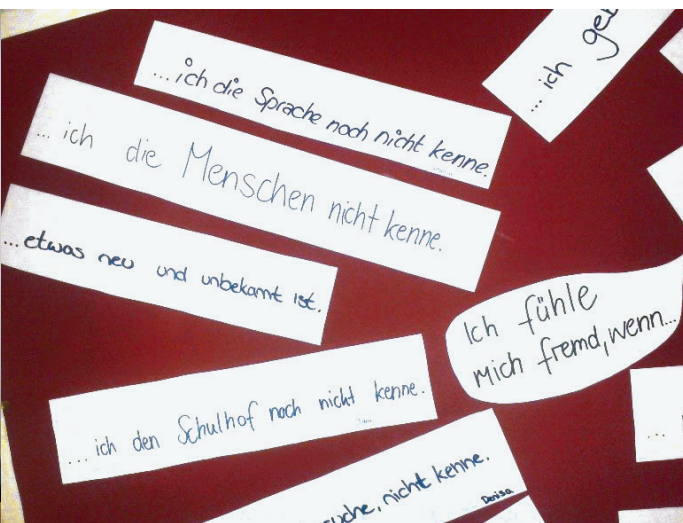 ...ich die Sprache noch nicht kenne.
... ich gel
... ich die Menschen nicht kenne.
...etwas neu und unbekamt ist.
Ich fühle
mich fremd, wenn...
...ich den Schulhof noch nicht kenne.
suche, nicht kenne.
Denisa
...